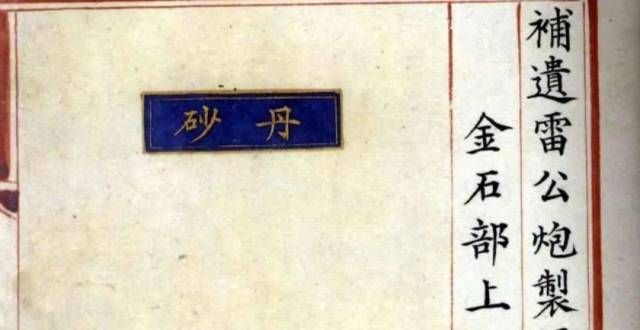 補遺雷公炮製
金石部上
丹砂